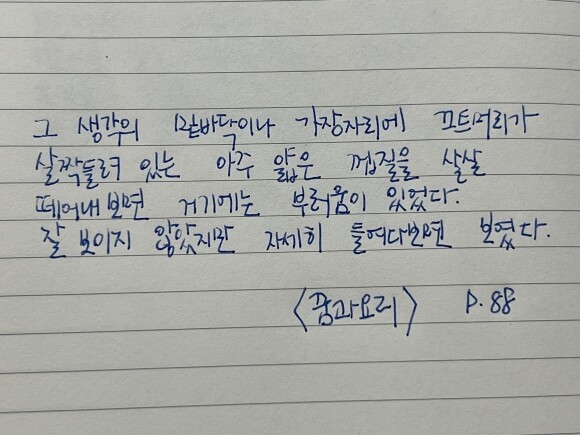 그 생각의 밑바닥이나 가장자리에 끄트머리가
살짝 들려 있는 아주 얇은 껍질을 살살
떼어내 보면 거기에는 부러움이 있었다.
잘 보이지 않았지만 자세히 들여다보면 보였다.
<꿈과요리> P.88